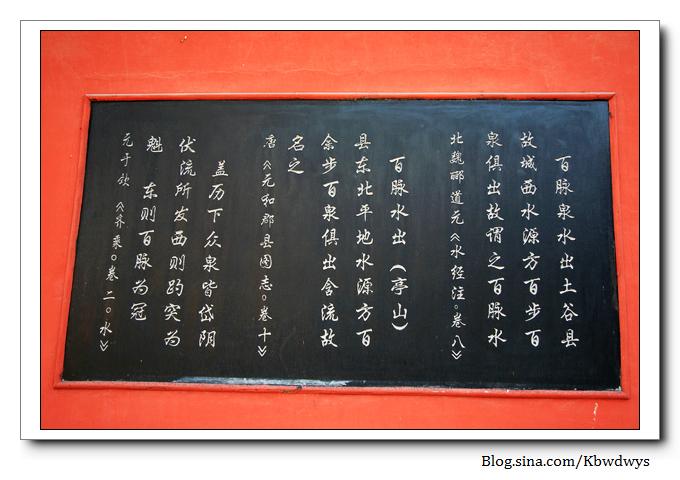 百脉泉水出土谷县
故城西水源方百步百
泉俱出故谓之百脉水
北魏郦道元《水经注。卷八》
百脉水出（亭山）
县东北平地水源方百
余步百泉俱出合流故
名之
唐《元和郡县图志。卷十》
盖历下众泉皆岱阴
伏流所发西则趵突为
魁　东则百脉为冠
元于钦《齐乘。卷二。水》
Blog.sina.com/Kbwdwys